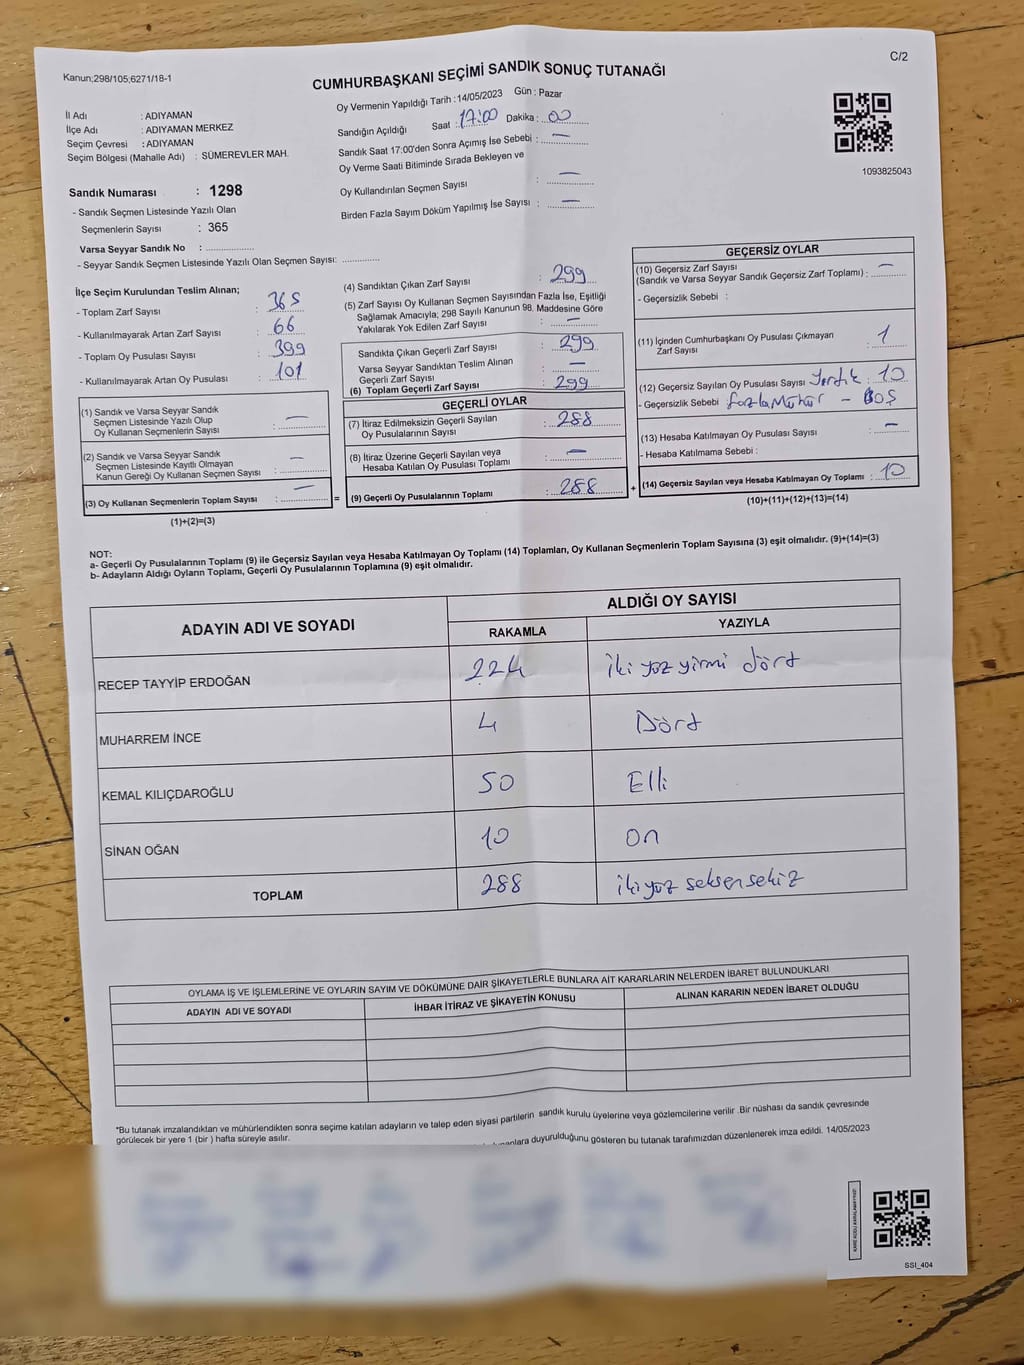 Kanun;298/105;6271/18-1
C/2
CUMHURBAŞKANI SEÇİMİ SANDIK SONUÇ TUTANAĞI
İl Adı : ADIYAMAN
İlçe Adı : ADIYAMAN MERKEZ
Seçim Çevresi : ADIYAMAN
Seçim Bölgesi (Mahalle Adı) : SÜMEREVLER MAH.
Sandık Numarası : 1298
- Sandık Seçmen Listesinde Yazılı Olan
Seçmenlerin Sayısı : 365
Varsa Seyyar Sandık No : ................
- Seyyar Sandık Seçmen Listesinde Yazılı Olan Seçmen Sayısı: ............
Oy Vermenin Yapıldığı Tarih :14/05/2023 Gün : Pazar
Sandığın Açıldığı Saat : 17:00 Dakika : 00
Sandık Saat 17:00'den Sonra Açımış İse Sebebi : —
Oy Verme Saati Bitiminde Sırada Bekleyen ve
Oy Kullandırılan Seçmen Sayısı : —
Birden Fazla Sayım Döküm Yapılmış İse Sayısı : —
1093825043
İlçe Seçim Kurulundan Teslim Alınan;
- Toplam Zarf Sayısı : 365
- Kullanılmayarak Artan Zarf Sayısı : 66
- Toplam Oy Pusulası Sayısı : 399
- Kullanılmayarak Artan Oy Pusulası : 101
(1) Sandık ve Varsa Seyyar Sandık
Seçmen Listesinde Yazılı Olup
Oy Kullanan Seçmenlerin Sayısı : —
(2) Sandık ve Varsa Seyyar Sandık
Seçmen Listesinde Kayıtlı Olmayan
Kanun Gereği Oy Kullanan Seçmen Sayısı : —
(3) Oy Kullanan Seçmenlerin Toplam Sayısı : — =
(1)+(2)=(3)
(4) Sandıktan Çıkan Zarf Sayısı : 299
(5) Zarf Sayısı Oy Kullanan Seçmen Sayısından Fazla İse, Eşitliği
Sağlamak Amacıyla; 298 Sayılı Kanunun 98. Maddesine Göre
Yakılarak Yok Edilen Zarf Sayısı : —
Sandıkta Çıkan Geçerli Zarf Sayısı : 299
Varsa Seyyar Sandıktan Teslim Alınan
Geçerli Zarf Sayısı : —
(6) Toplam Geçerli Zarf Sayısı : 299
GEÇERLİ OYLAR
(7) İtiraz Edilmeksizin Geçerli Sayılan
Oy Pusulalarının Sayısı : 288
(8) İtiraz Üzerine Geçerli Sayılan veya
Hesaba Katılan Oy Pusulası Toplamı : —
(9) Geçerli Oy Pusulalarının Toplamı : 288 +
GEÇERSİZ OYLAR
(10) Geçersiz Zarf Sayısı
(Sandık ve Varsa Seyyar Sandık Geçersiz Zarf Toplamı) : —
- Geçersizlik Sebebi :
(11) İçinden Cumhurbaşkanı Oy Pusulası Çıkmayan
Zarf Sayısı : 1
(12) Geçersiz Sayılan Oy Pusulası Sayısı Yırtık : 10
- Geçersizlik Sebebi fazla Mühür - BOŞ
(13) Hesaba Katılmayan Oy Pusulası Sayısı : —
- Hesaba Katılmama Sebebi :
(14) Geçersiz Sayılan veya Hesaba Katılmayan Oy Toplamı : 10
(10)+(11)+(12)+(13)=(14)
NOT:
a- Geçerli Oy Pusulalarının Toplamı (9) ile Geçersiz Sayılan veya Hesaba Katılmayan Oy Toplamı (14) Toplamları, Oy Kullanan Seçmenlerin Toplam Sayısına (3) eşit olmalıdır. (9)+(14)=(3)
b- Adayların Aldığı Oyların Toplamı, Geçerli Oy Pusulalarının Toplamına (9) eşit olmalıdır.
ADAYIN ADI VE SOYADI
ALDIĞI OY SAYISI
RAKAMLA YAZIYLA
RECEP TAYYİP ERDOĞAN 224 iki yüz yirmi dört
MUHARREM İNCE 4 Dört
KEMAL KILIÇDAROĞLU 50 Elli
SİNAN OĞAN 10 on
TOPLAM 288 iki yüz seksen sekiz
OYLAMA İŞ VE İŞLEMLERİNE VE OYLARIN SAYIM VE DÖKÜMÜNE DAİR ŞİKAYETLERLE BUNLARA AİT KARARLARIN NELERDEN İBARET BULUNDUKLARI
ADAYIN ADI VE SOYADI İHBAR İTİRAZ VE ŞİKAYETİN KONUSU ALINAN KARARIN NEDEN İBARET OLDUĞU
*Bu tutanak imzalandıktan ve mühürlendikten sonra seçime katılan adayların ve talep eden siyasi partilerin sandık kurulu üyelerine veya gözlemcilerine verilir .Bir nüshası da sandık çevresinde
görülecek bir yere 1 (bir ) hafta süreyle asılır.
duyurulduğunu gösteren bu tutanak tarafımızdan düzenlenerek imza edildi. 14/05/2023
SSI_404